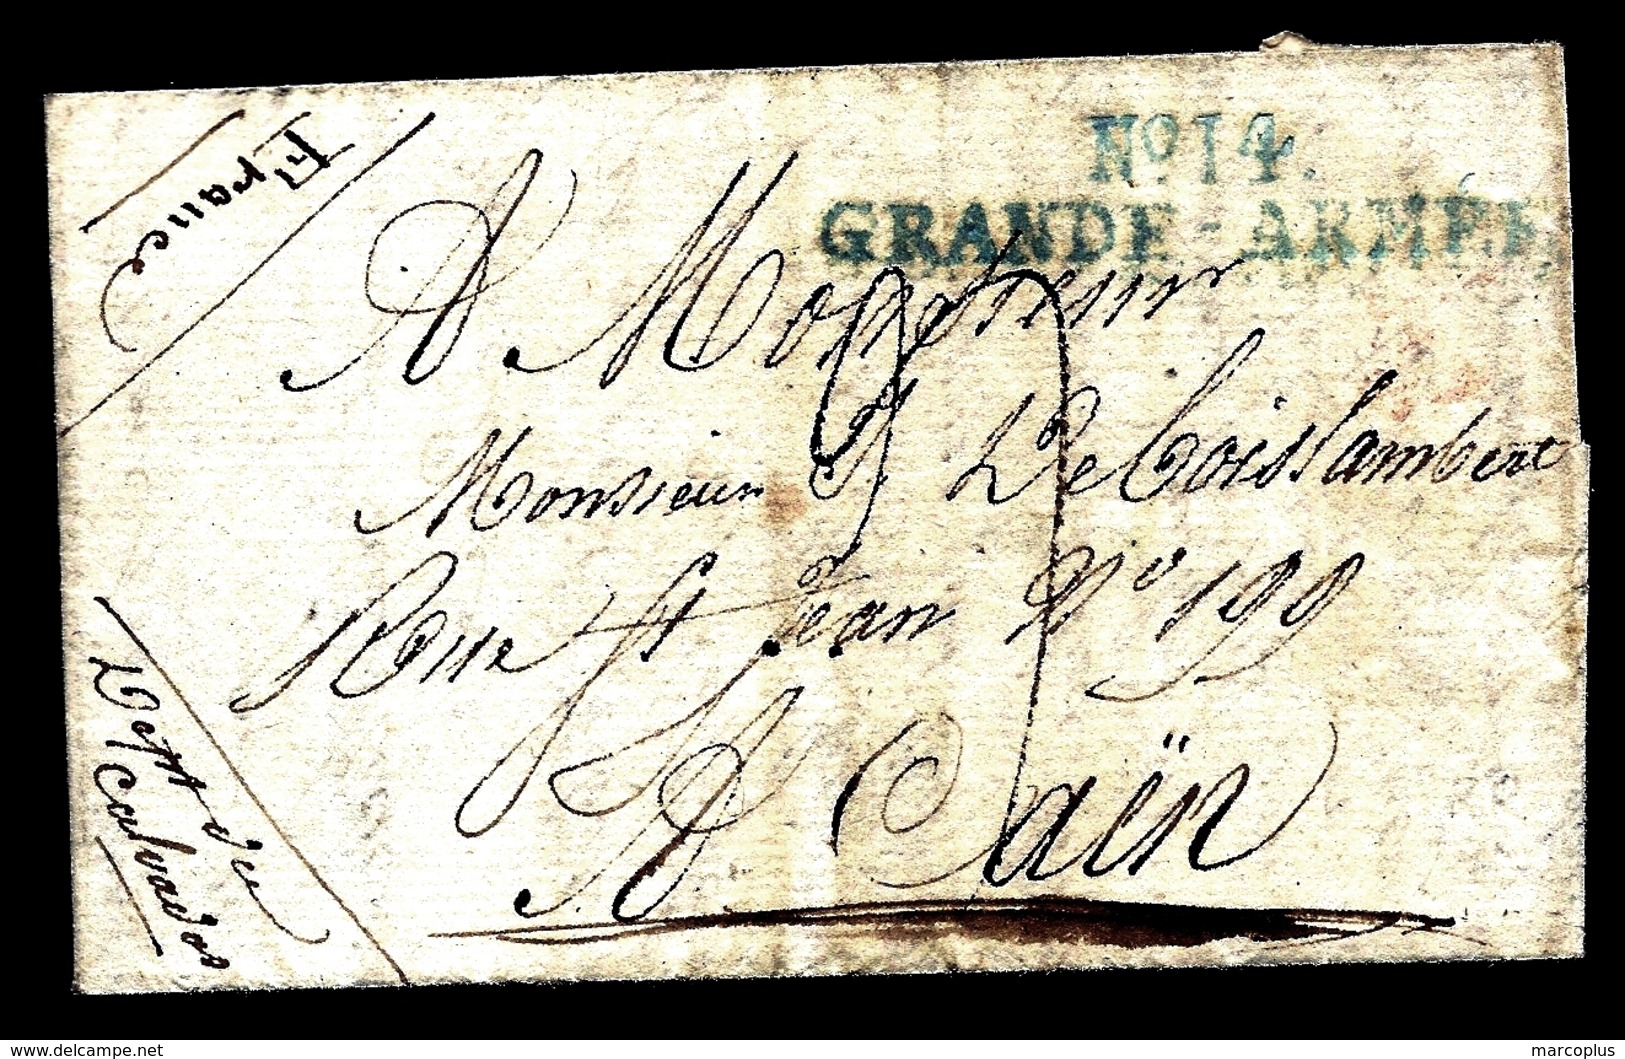 France
No 14.
GRANDE-ARMÉE
A Monsieur
Monsieur J. Leboislambert
Rue St Jean No 199
A Caën
Dept du
Calvados
www.delcampe.net
marcoplus